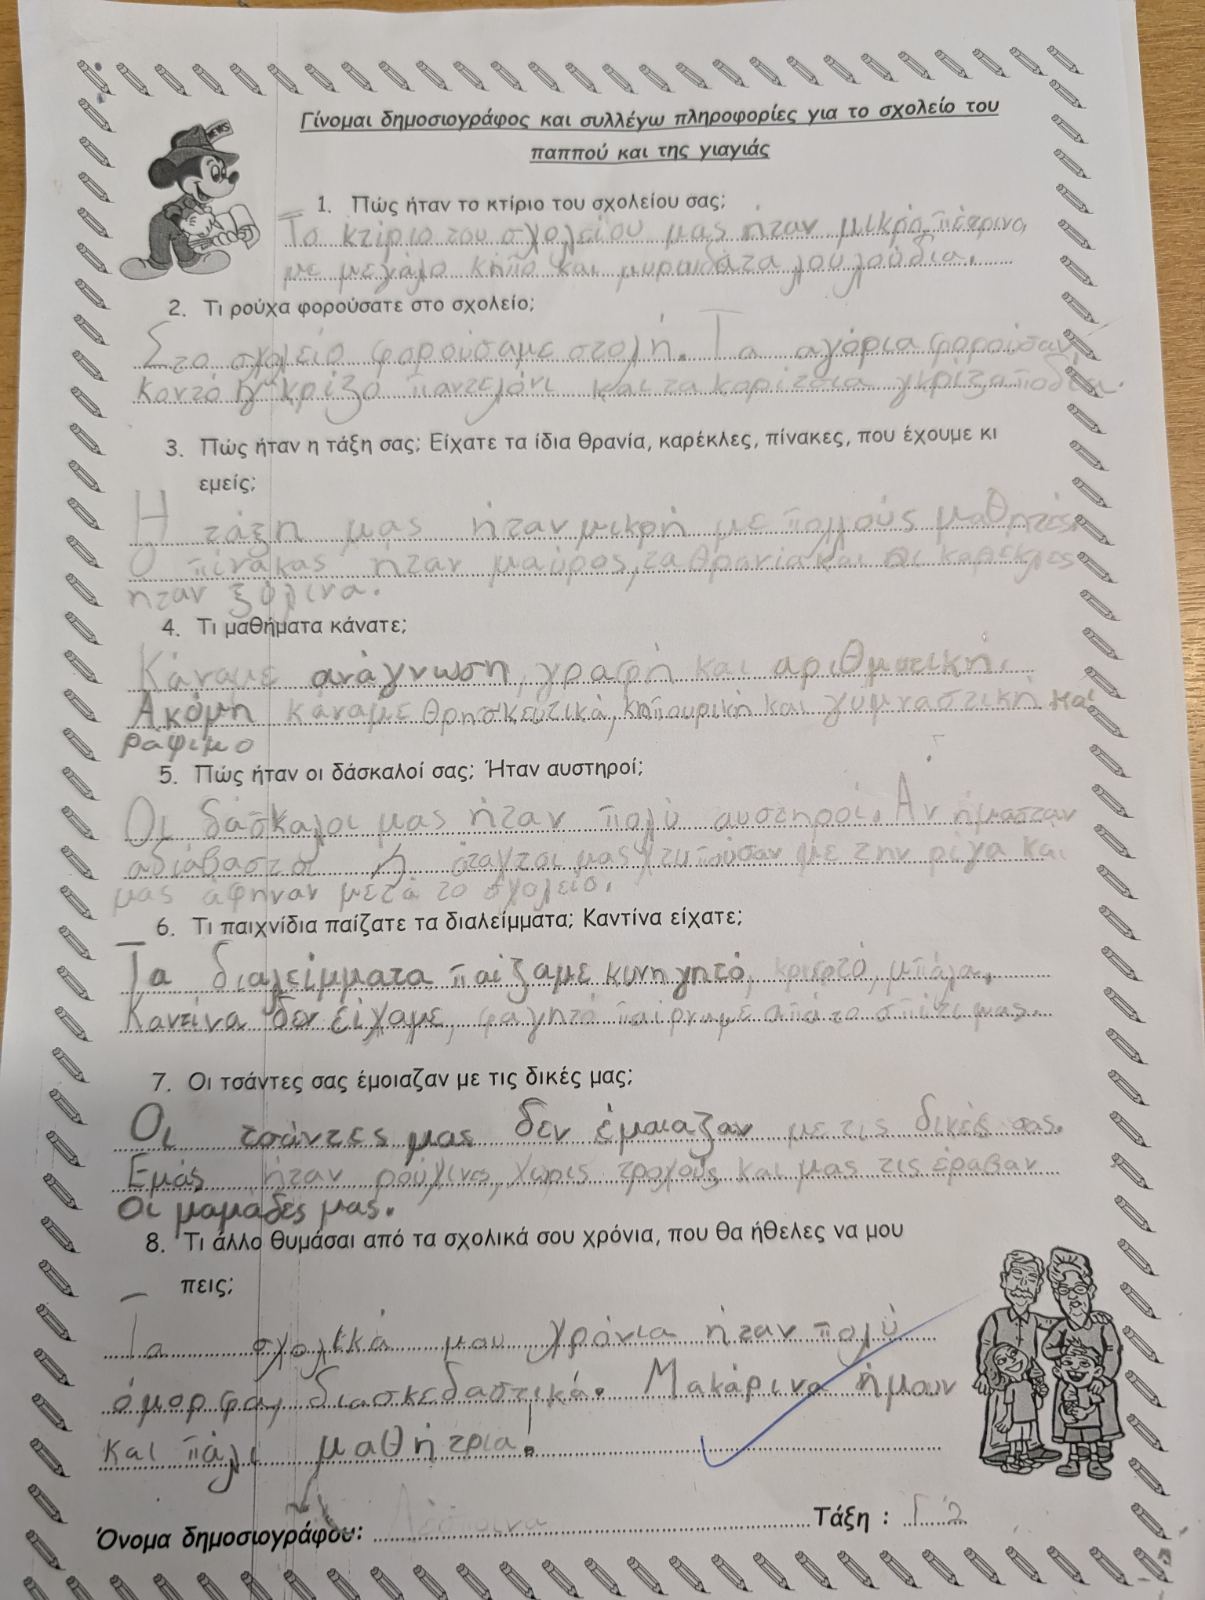 NEWS
Γίνομαι δημοσιογράφος και συλλέγω πληροφορίες για το σχολείο του
παππού και της γιαγιάς
1. Πώς ήταν το κτίριο του σχολείου σας;
Το κτίριο του σχολείου μας ήταν μικρό, πέτρινο,
με μεγάλο κήπο και μυρωδάτα λουλούδια.
2. Τι ρούχα φορούσατε στο σχολείο;
Στο σχολείο φορούσαμε στολή. Τα αγόρια φορούσαν
κοντό γκρίζο παντελόνι και τα κορίτσια γκρίζα ποδιά.
3. Πώς ήταν η τάξη σας; Είχατε τα ίδια θρανία, καρέκλες, πίνακες, που έχουμε κι
εμείς;
Η τάξη μας ήταν μικρή με πολλούς μαθητές.
Ο πίνακας ήταν μαύρος, τα θρανία και οι καρέκλες
ήταν ξύλινα.
4. Τι μαθήματα κάνατε;
Κάναμε ανάγνωση, γραφή και αριθμητική.
Ακόμη κάναμε θρησκευτικά, κηπουρική και γυμναστική και
ράψιμο
5. Πώς ήταν οι δάσκαλοί σας; Ήταν αυστηροί;
Οι δάσκαλοι μας ήταν πολύ αυστηροί. Αν ήμασταν
αδιάβαστοι ή άταχτοι μας χτυπούσαν με την ρίγα και
μας άφηναν μετά το σχολείο.
6. Τι παιχνίδια παίζατε τα διαλείμματα; Καντίνα είχατε;
Τα διαλείμματα παίζαμε κυνηγητό, κρυφτό, μπάλα.
Καντίνα δεν είχαμε, φαγητό παίρναμε από το σπίτι μας.
7. Οι τσάντες σας έμοιαζαν με τις δικές μας;
Οι τσάντες μας δεν έμοιαζαν με τις δικές σας.
Εμάς ήταν ρούχινες, χωρίς τροχούς και μας τις έραβαν
οι μαμάδες μας.
8. Τι άλλο θυμάσαι από τα σχολικά σου χρόνια, που θα ήθελες να μου
πεις;
Τα σχολικά μου χρόνια ήταν πολύ
όμορφα, διασκεδαστικά. Μακάρι να ήμουν
και πάλι μαθήτρια!
Όνομα δημοσιογράφου: Δέσποινα Τάξη : Γ΄2